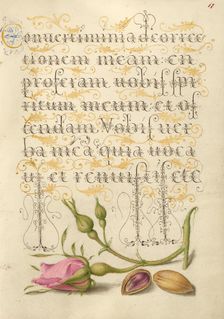 Convertimini ad correctionem meam: en
proferam vobis spi
ritum meum: et of
tendam vobis ver
ba mea. quia voca
vi et renuistis etc.